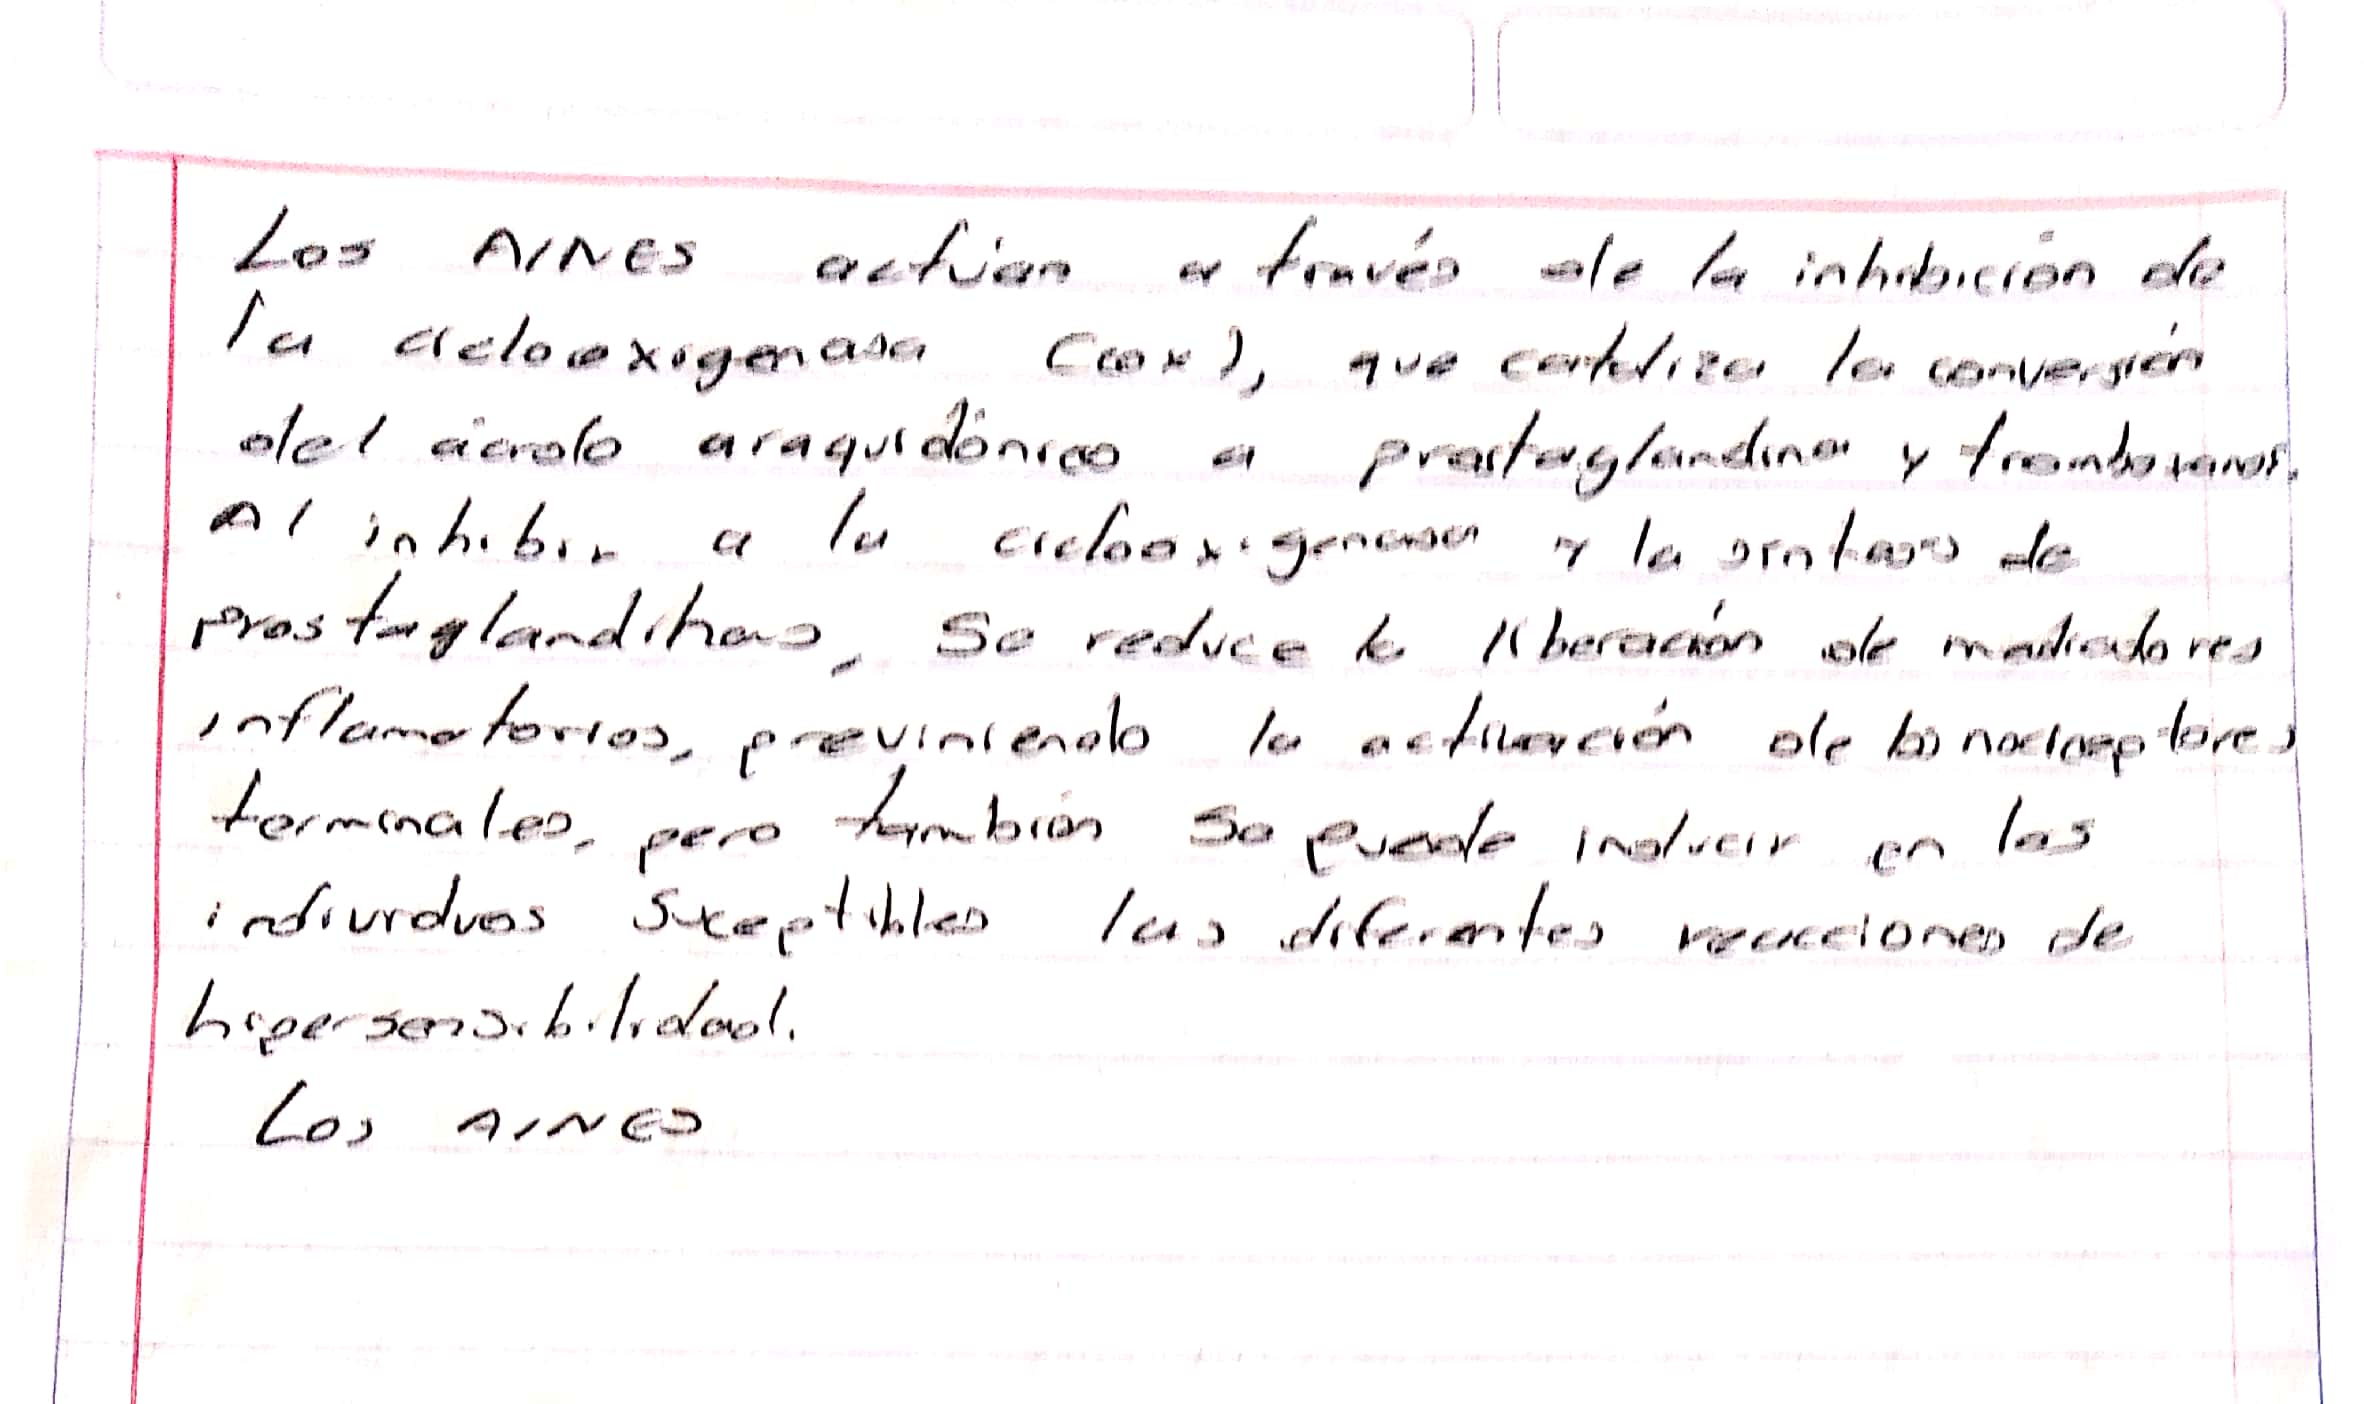 Los AINES actúan a través de la inhibición de
la ciclooxigenasa (cox), que cataliza la conversión
del ácido araquidónico a prostaglandina y tromboxanos.
Al inhibir a la ciclooxigenasa y la síntesis de
prostaglandinas, se reduce la liberación de mediadores
inflamatorios, previniendo la activación de los nociceptores
terminales, pero también se puede inducir en los
individuos suceptibles las diferentes reacciones de
hipersensibilidad.
Los AINES